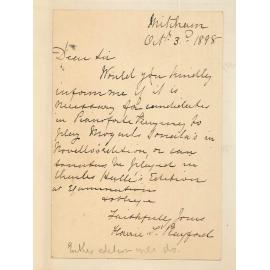 Mitcham
Octr 3rd 1898
Dear Sir
Would you kindly
inform me if it is
necessary for candidates
in Pianoforte Playing to
play Mozart's Sonatas in
Novello's edition or can
sonatas be played in
Charles Hallé's Edition
at Examination
Faithfully Yours
Playford
Either edition will do.